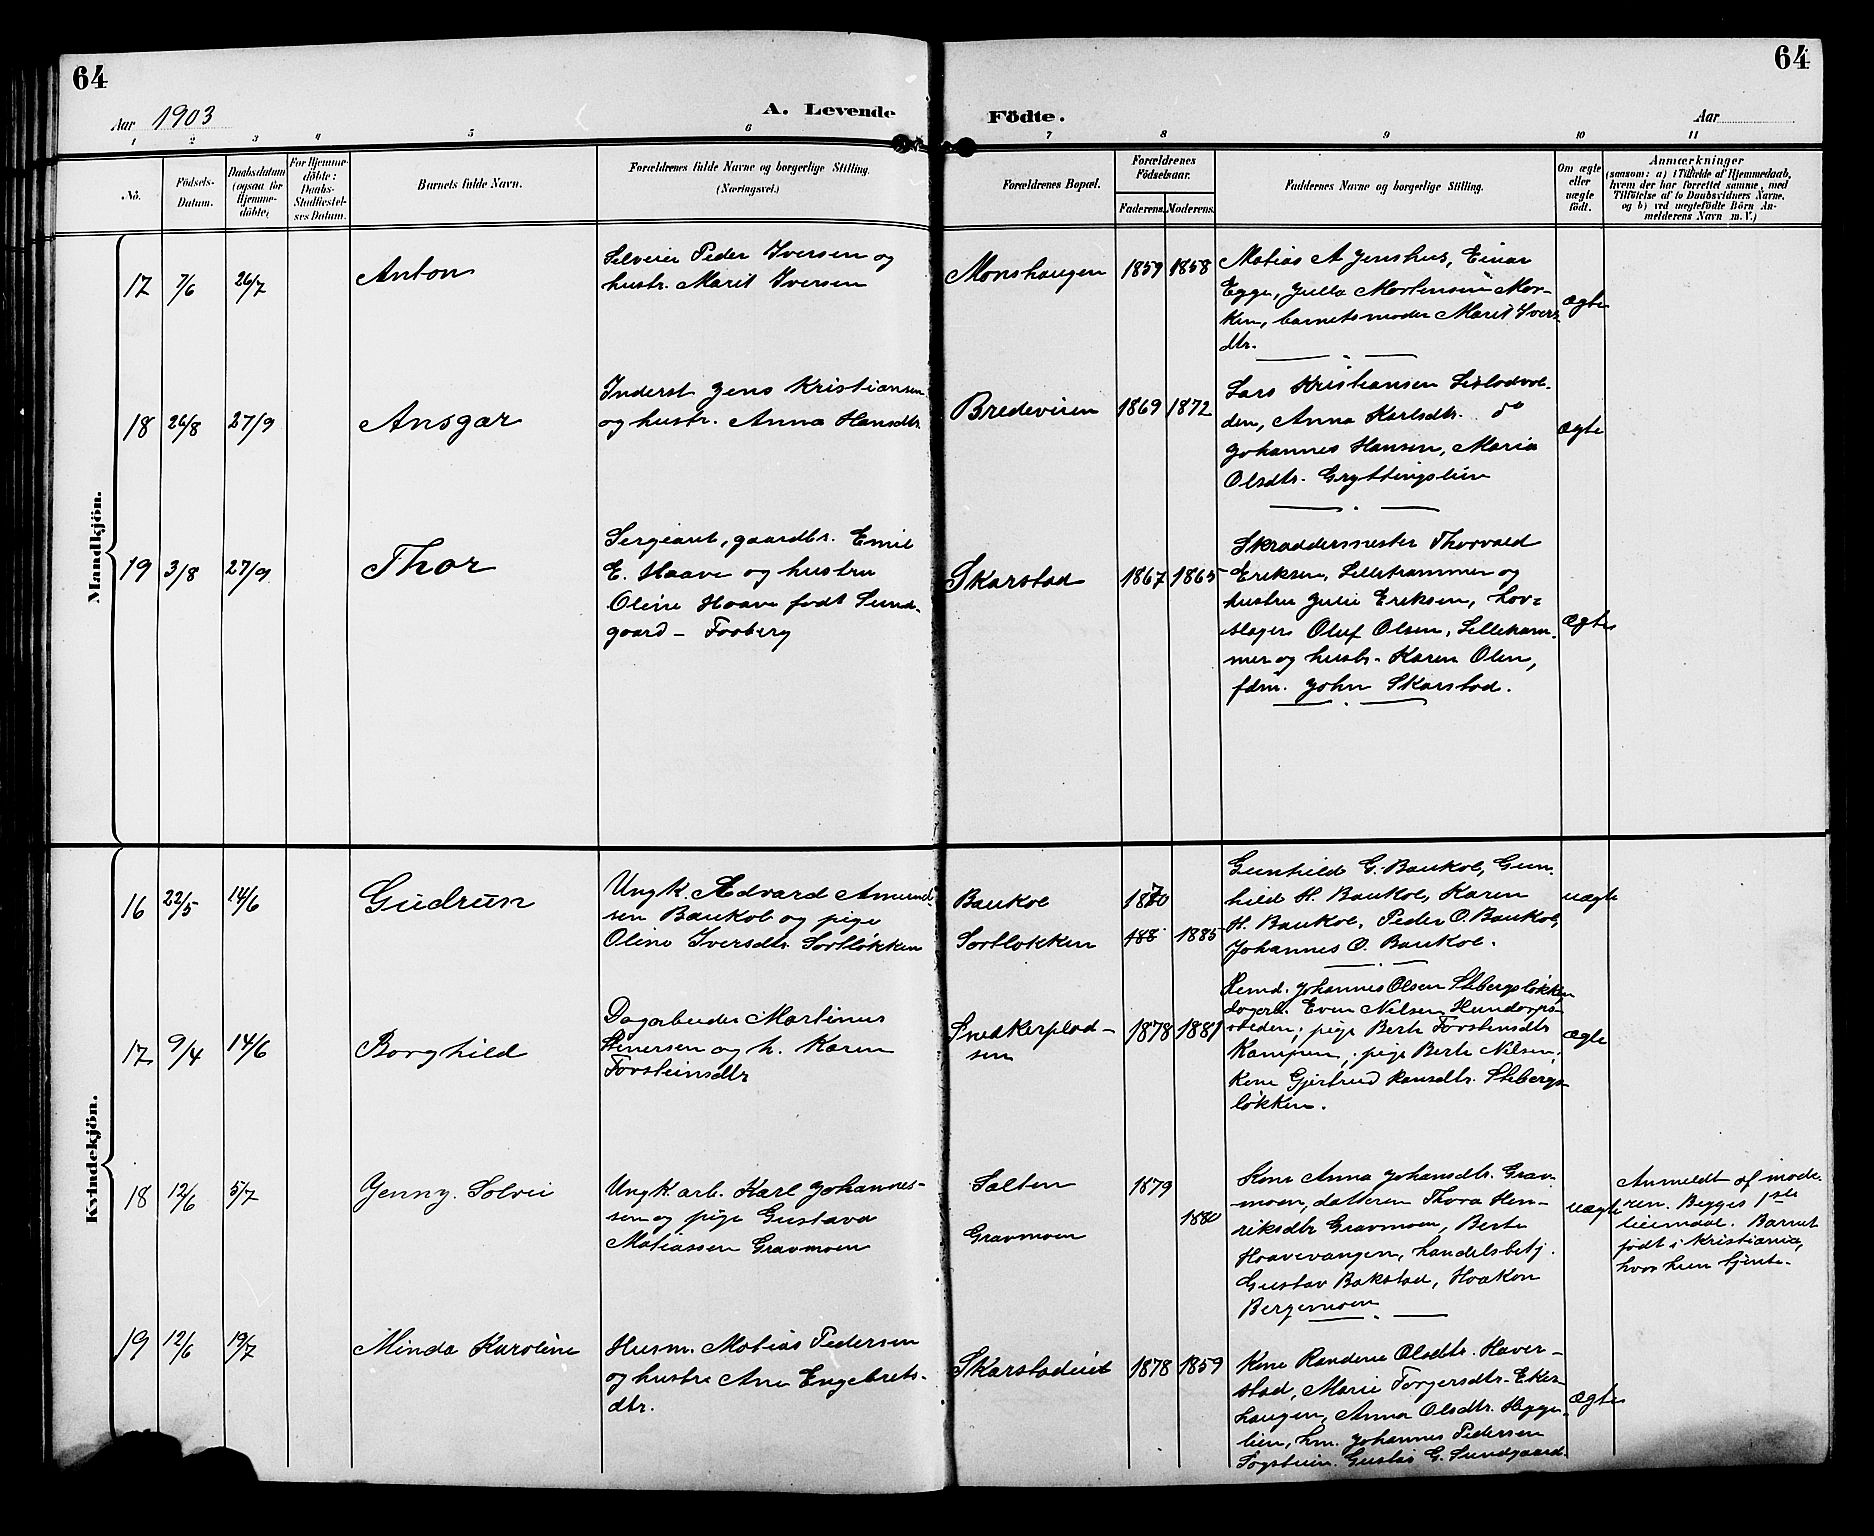 64
64
Aar 1903
A. Levende
Födte.
Aar
1
2
3
4
5
6
7
8
9
10
11
No.
Födsels-
Datum.
Daabsdatum
(ogsaa for
Hjemme-
döbte)
For Hjemme-
döbte:
Daabs-
Stadfæstel-
ses Datum.
Barnets fulde Navn.
Forældrenes fulde Navne og borgerlige Stilling.
(Næringsvei.)
Forældrenes Bopæl.
Forældrenes
Födselsaar.
Faderens.
Moderens.
Faddernes Navne og borgerlige Stilling.
Om ægte
eller
uægte
født.
Anmærkninger
(saasom: a) i Tilfælde af Hjemmedaab,
hvem der har forrettet samme, med
Tilföielse af to Daabsvidners Navne,
og b) ved uægtefödte Börn An-
melderens Navn m. V.)
Mandkjön.
17
7/6
26/7
Anton
Selveier Peder Iversen og
hustr. Marit Iversen
Monshaugen
1859
1858
Matias A Jenshus, Einar
Egge, Julla Mortensen Mor-
ken, barnets moder Marit Ivers-
dtr.
ægte
18
26/8
27/9
Ansgar
Inderst Jens Kristiansen
og hustr. Anna Hansdtr.
Bredeviren
1869
1872
Lars Kristiansen
den, Anna Karlsdtr. do
Johannes Hansen, Maria
Olsdtr. Gryttingslien
ægte
19
3/8
27/9
Thor
Sergeant, gaardbr. Emil
E. Haave og hustru
Oline Haave født Sund-
gaard - Foaberg
Skarstad
1867
1865
Skræddermester Thorvald
Eriksen, Lillehammer og
hustru Julie Eriksen, hov-
slager Oluf Olsen, Lilleham-
mer og hustr. Karen Olsen,
fdm. John Skarstad.
ægte
Kvindekjön.
16
22/5
14/6
Gudrun
Ungk. Edvard Amund-
sen Baukol og pige
Oline Iversdtr Sortløkken
Baukol
1870
Sortløkken
188
1885
Gunhild G. Baukol, Gun-
hild H. Baukol, Karen
H. Baukol, Peder O. Baukol,
Johannes O. Baukol.
uægte
17
9/4
14/6
Borghild
Dagarbeider Martinus
Stenersen og h. Karen
Torsteinsdtr
Snedkerplad-
sen
1878
1881
Johannes Olsen Stebergsløkken
dagarb. Even Nilsen Hundorps-
; pige Berte Torsteinsdtr
Kampen, pige Berte Nilsen,
Kone Gjertrud Hansdtr. Stebergs-
løkken.
ægte
18
12/6
5/7
Jenny Solvei
Ungk. arb. Karl Johannes-
sen og pige Gustava
Matiassen Gravmoen
Solten
1879
Gravmoen
1880
Kone Anna Johansdtr. Grav-
moen, datteren Thora Hen-
riksdtr Gravmoen, Berte
Haavevangen, handelsbetj.
Gustav Bakstad, Haakon
Bergemoen
uægte
Anmeldt af mode-
ren. Begges 1ste
leiemaal. Barnet
født i Kristiania,
hvor hun tjente.
19
12/6
19/7
Minda Karoline
Husm. Matias Pedersen
og hustru Ane Engebrets-
dtr.
Skarstadeiet
1878
1859
Kone Randine Olsdtr. Haver-
stad, Marie Torgersdtr. Eker-
haugen, Anna Olsdtr. Hegge-
lien, hm. Johannes Pedersen
Fogstuen. Gustav G. Sundgaard.
ægte